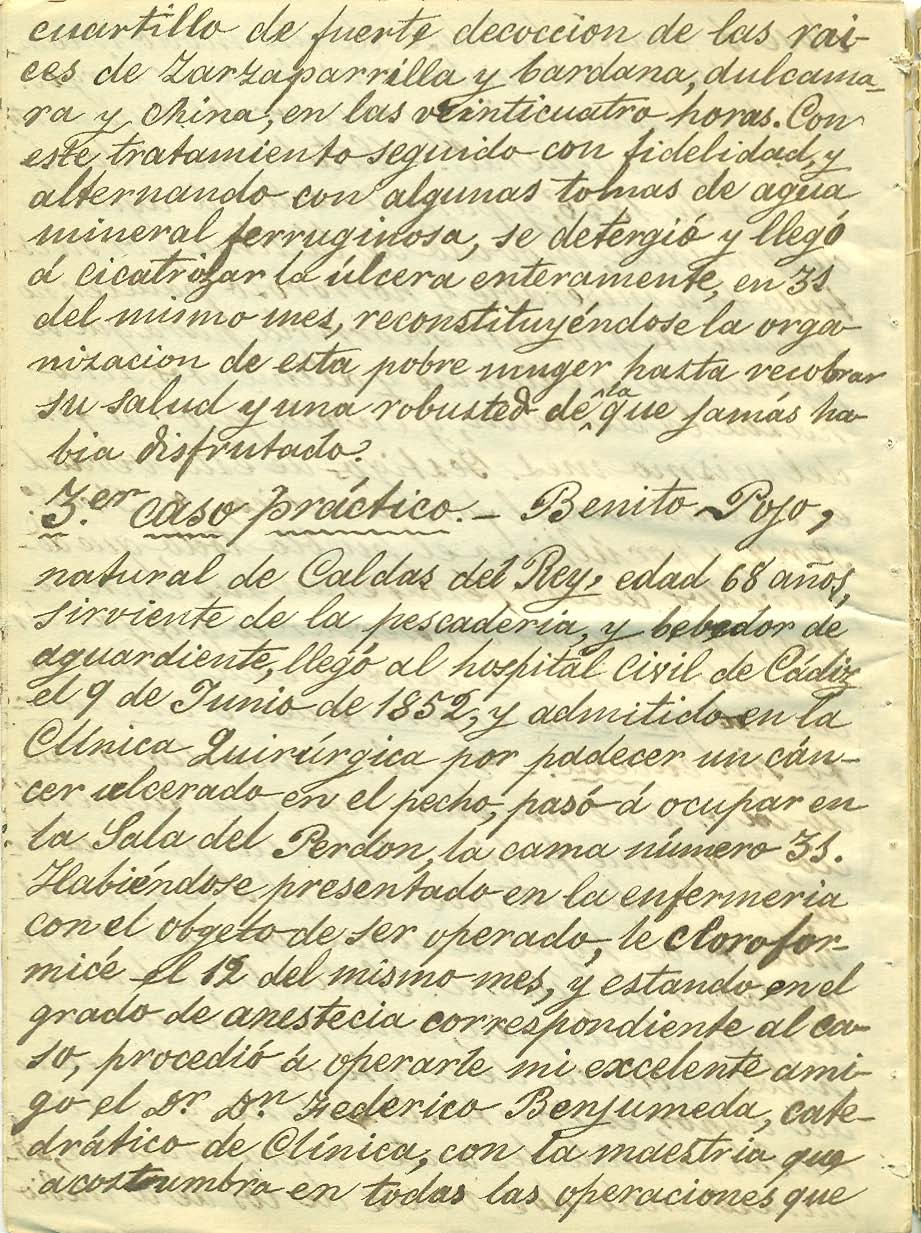 cuartillo de fuerte decoccion de las rai-
ces de Zarzaparrilla y bardana, dulcama-
ra y China, en las veinticuatro horas. Con
este tratamiento seguido con fidelidad, y
alternando con algunas tomas de agua
mineral ferruginosa, se detergió y llegó
á cicatrizar la úlcera enteramente, en 31
del mismo mes, reconstituyéndose la orga-
nizacion de esta pobre muger hasta recobrar
su salud y una robusted de la que jamás ha-
bia disfrutado.
3.er caso práctico. – Benito Pojo,
natural de Caldas del Rey, edad 68 años,
sirviente de la pescaderia, y bebedor de
aguardiente, llegó al hospital civil de Cádiz
el 9 de Junio de 1852, y admitido en la
Clínica Quirúrgica por padecer un cán-
cer ulcerado en el pecho, pasó á ocupar en
la Sala del Perdon, la cama número 31.
Habiéndose presentado en la enfermeria
con el obgeto de ser operado, le clorofor-
micé el 12 del mismo mes, y estando en el
grado de anestecia correspondiente al ca-
so, procedió á operarle mi excelente ami-
go el Dr. Dn. Federico Benjumeda, cate-
drático de Clínica, con la maestria que
acostumbra en todas las operaciones que